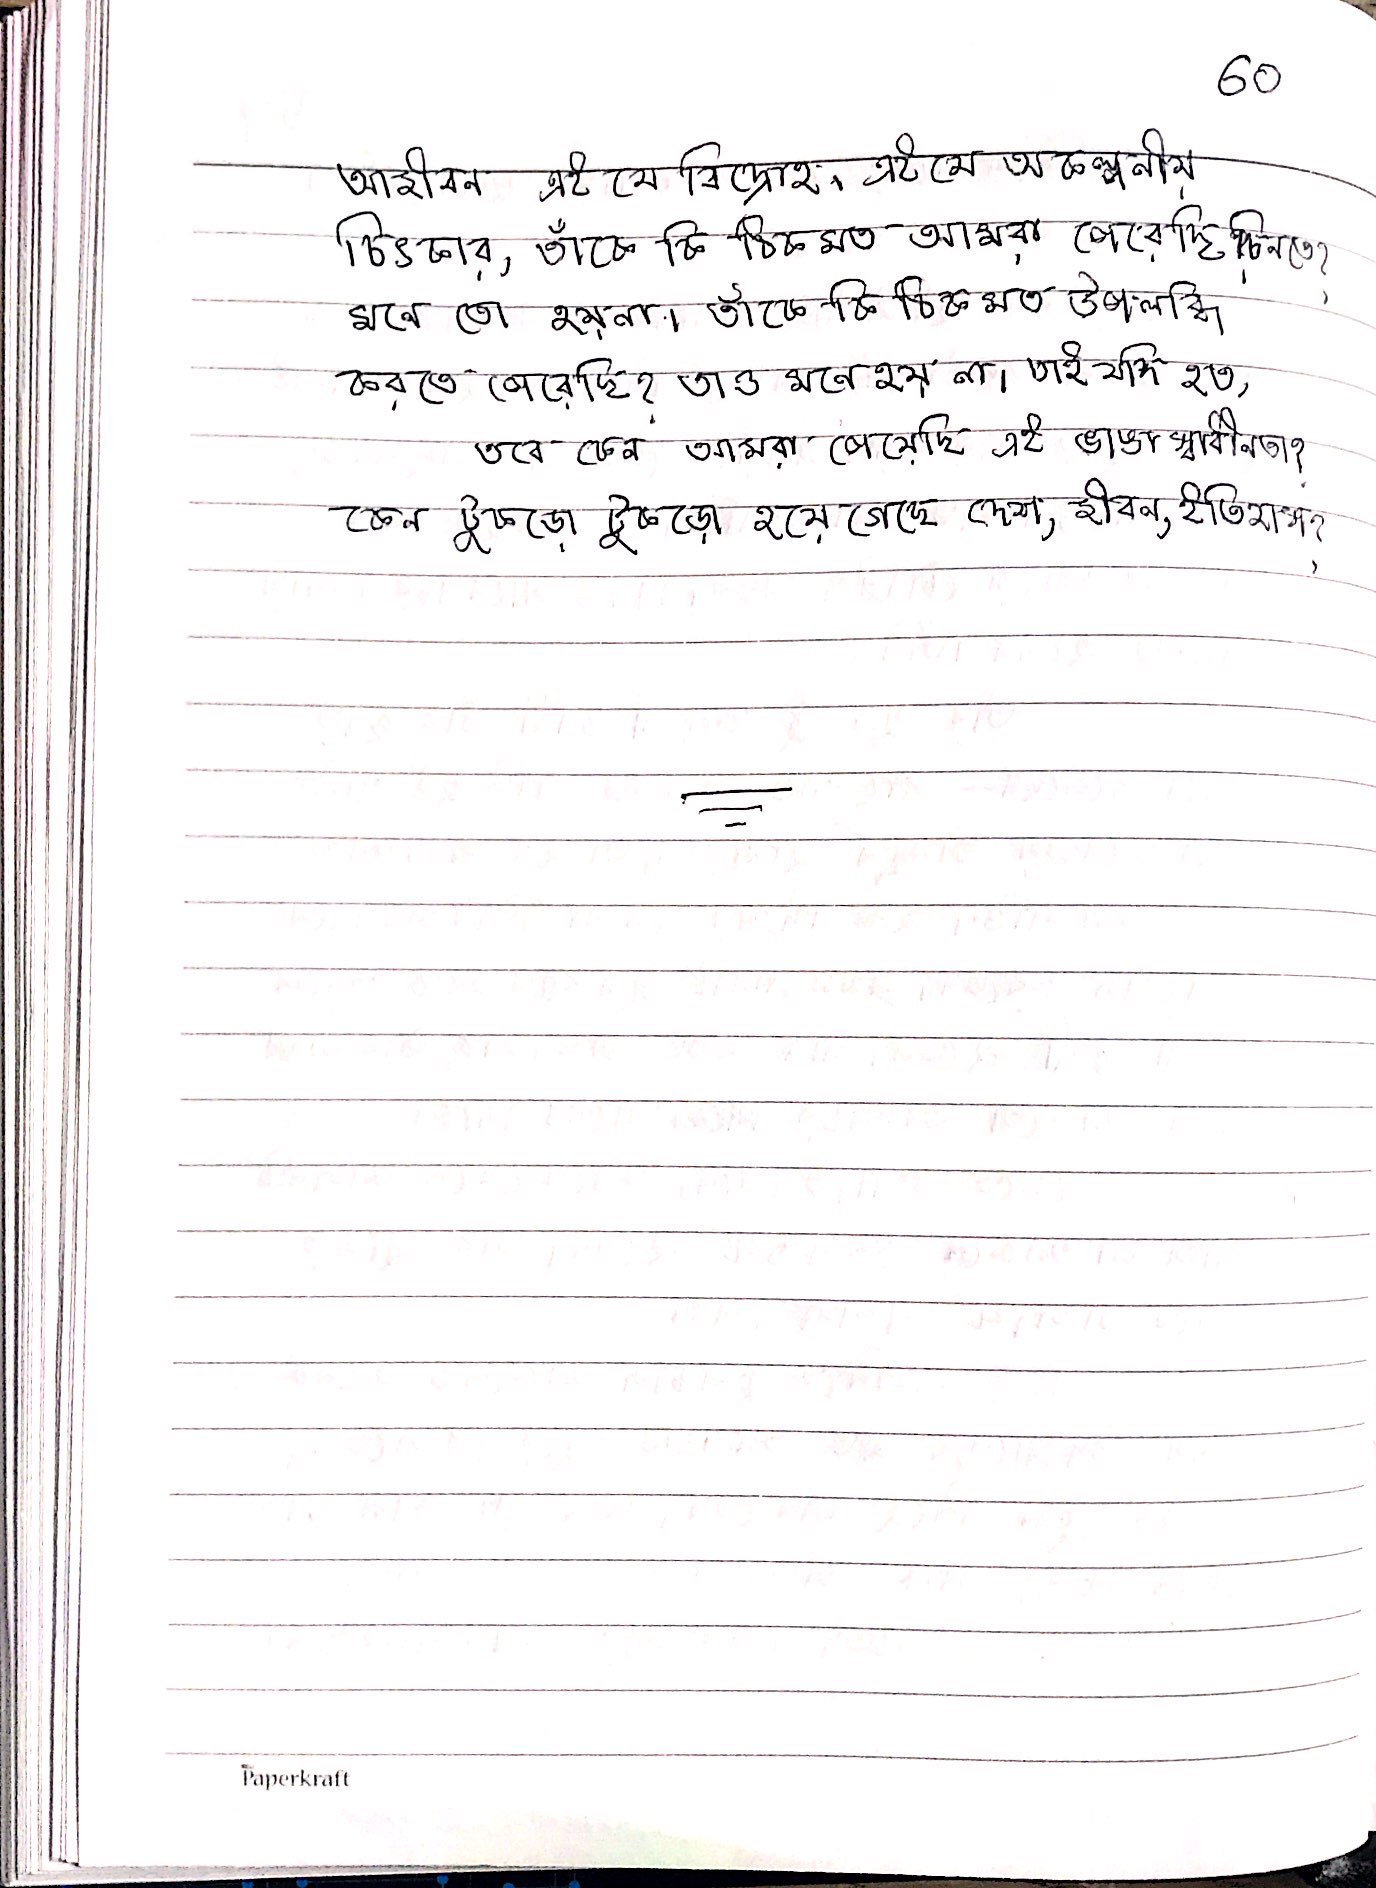 60
আজীবন এই যে বিদ্রোহ, এই যে অকল্পনীয়
চিৎকার, তাঁকে কি ঠিকমত আমরা পেরেছি চিনতে?
মনে তো হয়না। তাঁকে কি ঠিকমত উপলব্ধি
করতে পেরেছি? তাও মনে হয় না। তাই যদি হত,
তবে কেন আমরা পেয়েছি এই ভাঙা স্বাধীনতা?
কেন টুকড়ো টুকড়ো হয়ে গেছে দেশ, জীবন, ইতিহাস?
Paperkraft